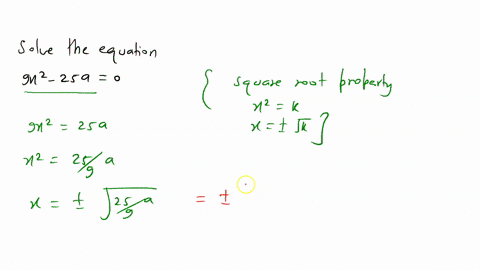 Solve the equation
9x² - 25a = 0
{ square root property
x² = k
x = ± √k }
9x² = 25a
x² = 25/9 a
x = ± √(25/9 a) = ±